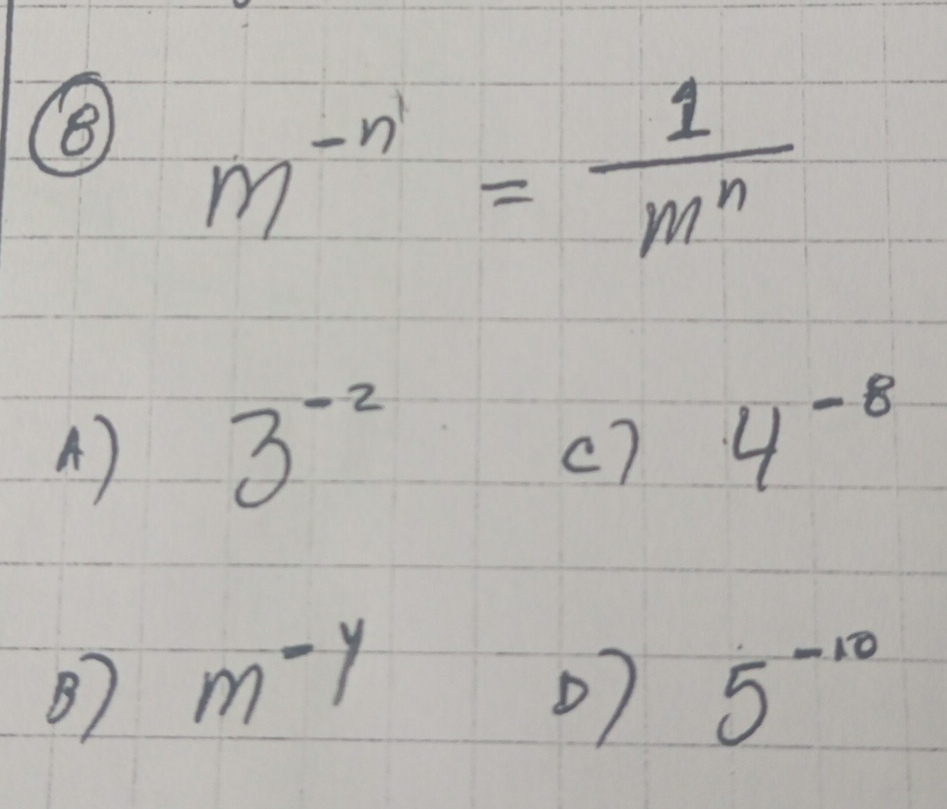 ⑧ m⁻ⁿ = 1/mⁿ
A) 3⁻² C) 4⁻⁸
B) m⁻ʸ D) 5⁻¹⁰